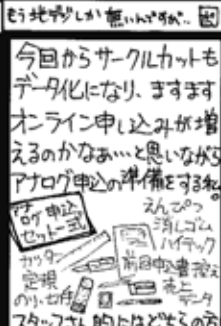 もう地デジしか無いんですが‥
今回からサークルカットも
データ化になり、ますます
オンライン申し込みが増
えるのかなあ…と思いながら
アナログ申込の準備をする私。
アナログ申込
セット一式
えんぴつ
消しゴム
ハイテック
カッター
定規
のり、切手
前回申込書控え
売上
データ
スタッフさん的にはどちらの方